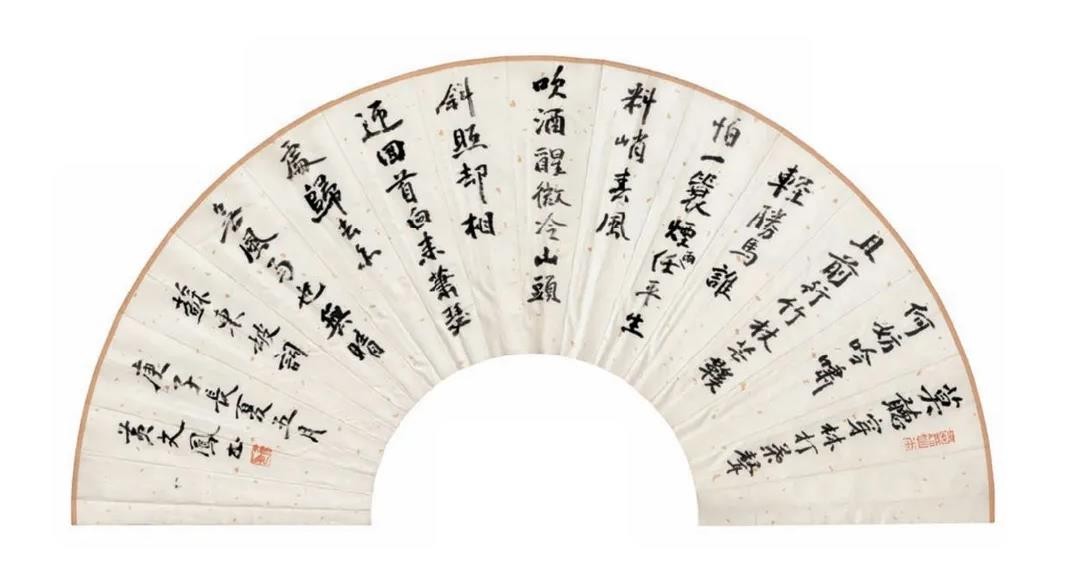 莫聽穿林打葉聲
何妨吟嘯
且前行竹杖芒鞋
輕勝馬誰
怕一蓑煙雨任平生
料峭春風
吹酒醒微冷山頭
斜照却相
迎回首向来蕭瑟
處歸去亦
無風雨也無晴
蘇東坡詞
庚子長夏五月
黄文鳳書